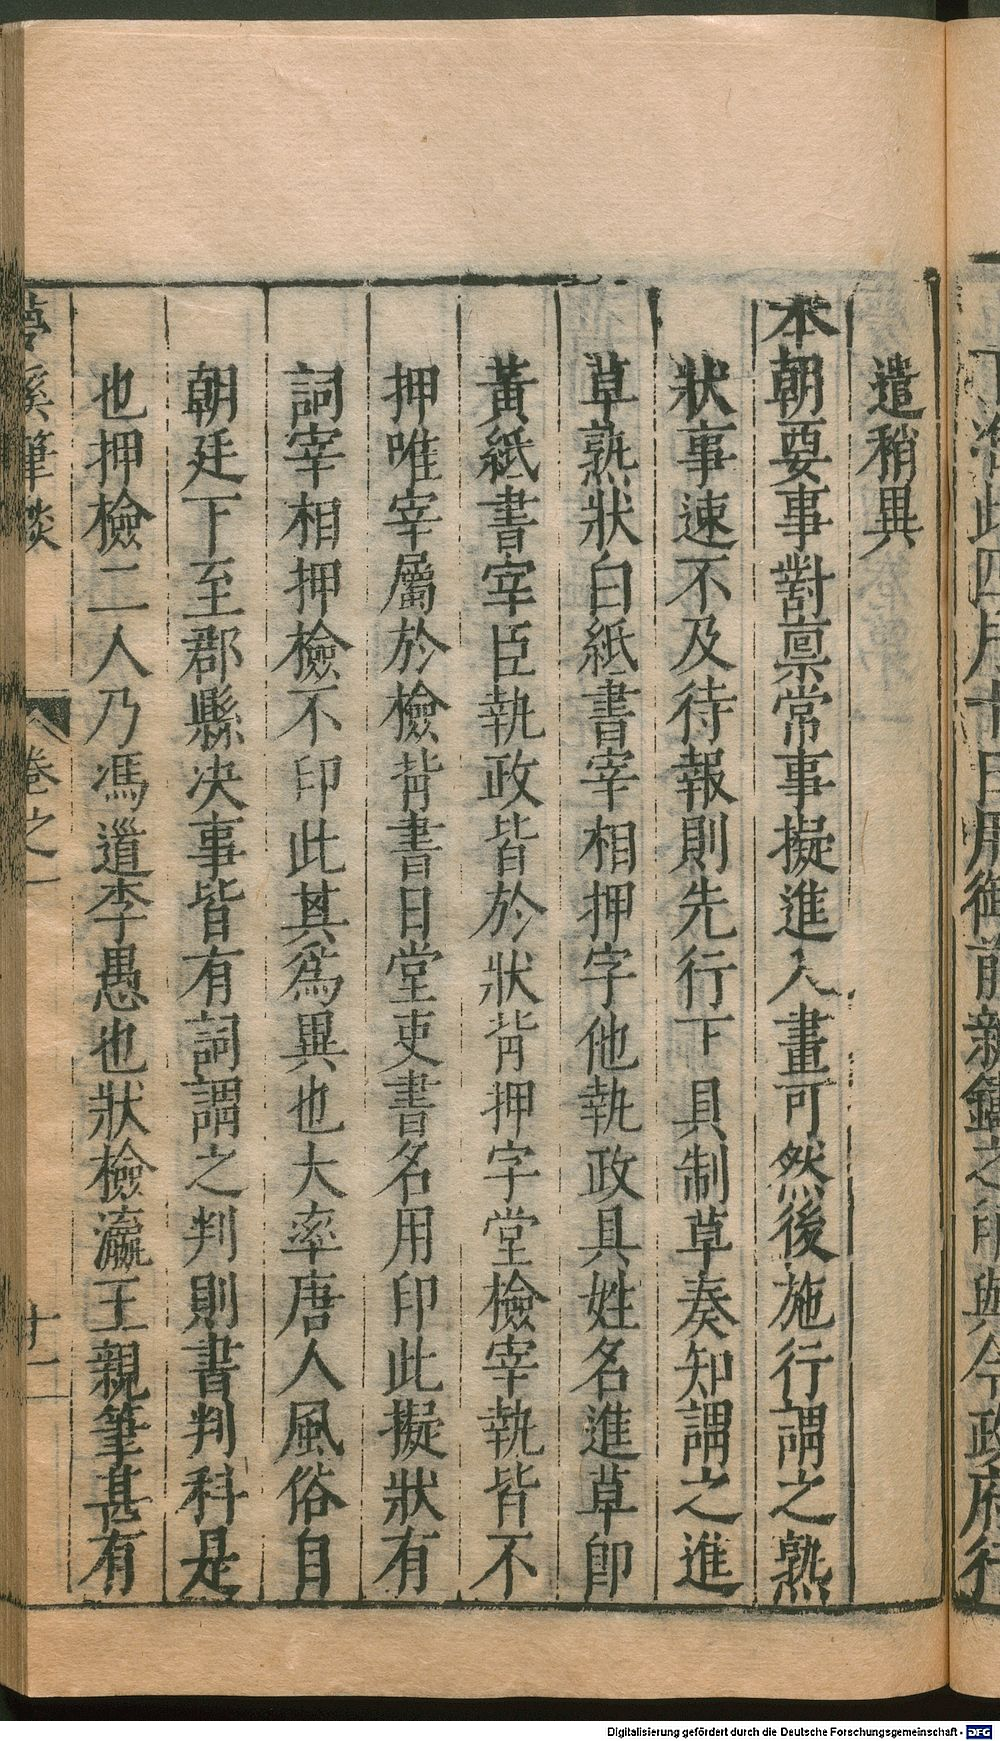 遣稍異
本朝要事對禀常事擬進入畫可然後施行謂之熟
狀事速不及待報則先行下具制草奏知謂之進
草熟狀白紙書宰相押字他執政具姓名進草卽
黃紙書宰臣執政皆於狀背押字堂檢宰執皆不
押唯宰屬於檢背書日堂吏書名用印此擬狀有
詞宰相押檢不印此其爲異也大率唐人風俗自
朝廷下至郡縣决事皆有詞謂之判則書判科是
也押檢二人乃馮道李愚也狀檢瀛王親筆甚有
夢溪筆談
卷之一
十一
此四月十日用御前新鑄之前與今政府行
Digitalisierung gefördert durch die Deutsche Forschungsgemeinschaft - DFG